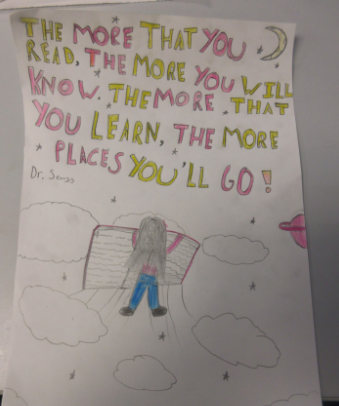 THE MORE THAT YOU
READ, THE MORE YOU WILL
KNOW. THE MORE THAT
YOU LEARN, THE MORE
PLACES YOU'LL GO!
Dr. Seuss